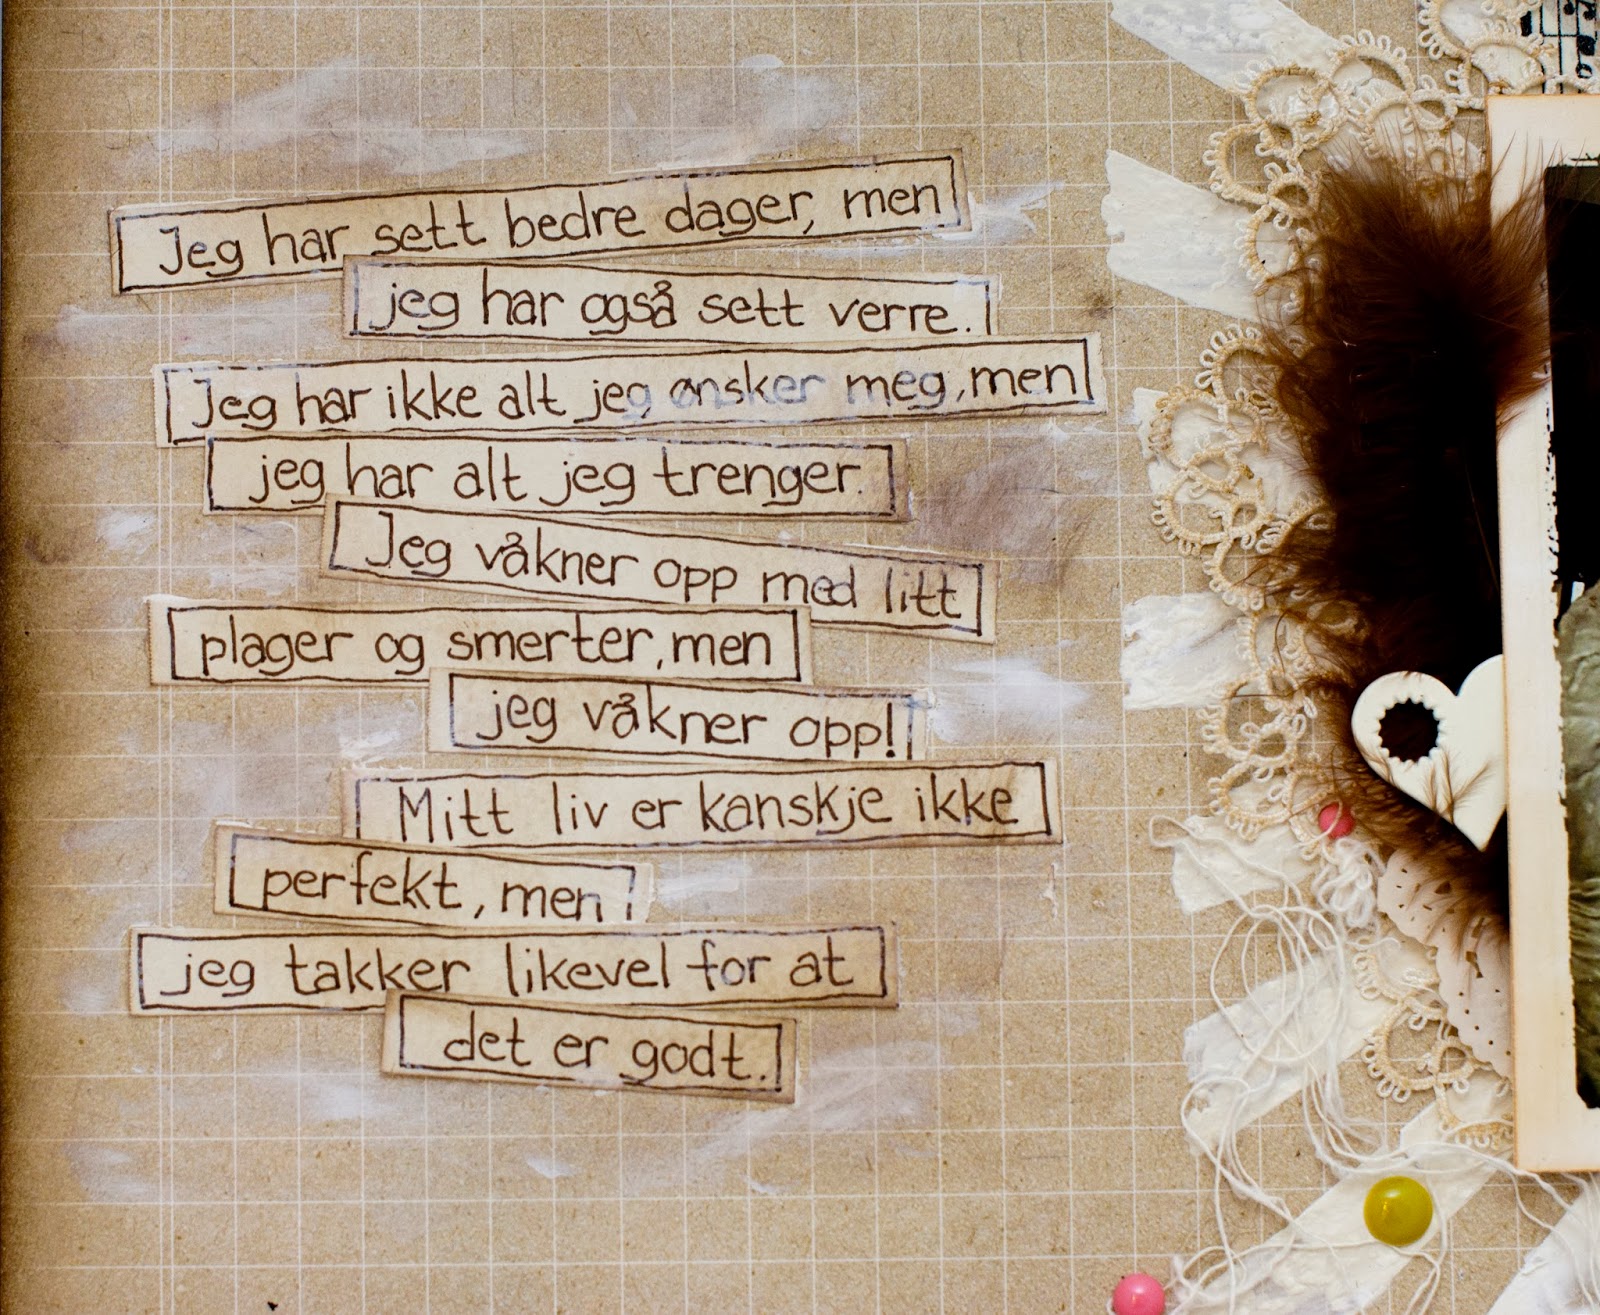 Jeg har sett bedre dager, men
jeg har også sett verre.
Jeg har ikke alt jeg ønsker meg, men
jeg har alt jeg trenger.
Jeg våkner opp med litt
plager og smerter, men
jeg våkner opp!
Mitt liv er kanskje ikke
perfekt, men
jeg takker likevel for at
det er godt.